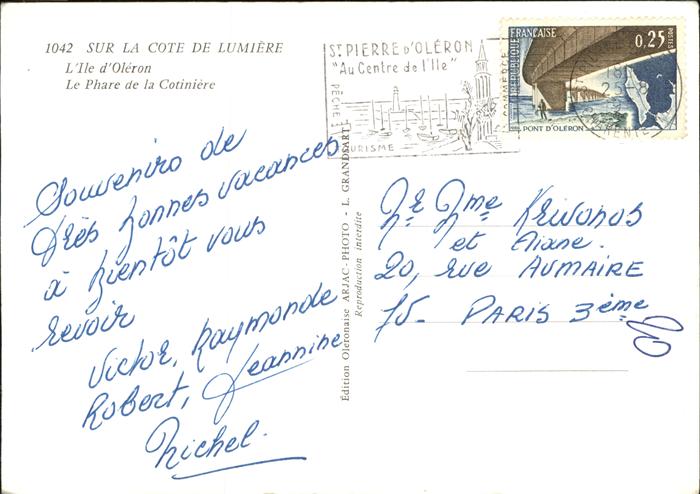 1042 SUR LA COTE DE LUMIÈRE
L'Ile d'Oléron
Le Phare de la Cotinière
Souvenirs de
très bonnes vacances
à bientôt vous
revoir
Victor, Raymonde
Robert, Jeannine
Michel.
Édition Oleronaise ARJAC-PHOTO - L. GRANDSART
Reproduction interdite
ST PIERRE D'OLÉRON
"Au Centre de l'Ile"
PÊCHE
COMMERCE
TOURISME
RÉPUBLIQUE FRANÇAISE
0,25
POSTES
PONT D'OLÉRON
Mr Mme KRIVONOS
et Eliane.
20, rue AUMAIRE
75- PARIS 3ème